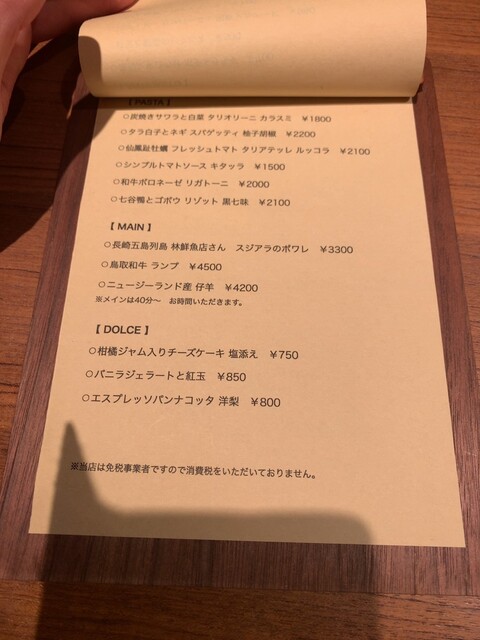 【 PASTA 】
○炭焼きサワラと白菜 タリオリーニ カラスミ ¥1800
○タラ白子とネギ スパゲッティ 柚子胡椒 ¥2200
○仙鳳趾牡蠣 フレッシュトマト タリアテッレ ルッコラ ¥2100
○シンプルトマトソース キタッラ ¥1500
○和牛ボロネーゼ リガトーニ ¥2000
○七谷鴨とゴボウ リゾット 黒七味 ¥2100
【 MAIN 】
○長崎五島列島 林鮮魚店さん スジアラのポワレ ¥3300
○鳥取和牛 ランプ ¥4500
○ニュージーランド産 仔羊 ¥4200
※メインは40分〜 お時間いただきます。
【 DOLCE 】
○柑橘ジャム入りチーズケーキ 塩添え ¥750
○バニラジェラートと紅玉 ¥850
○エスプレッソパンナコッタ 洋梨 ¥800
※当店は免税事業者ですので消費税をいただいておりません。